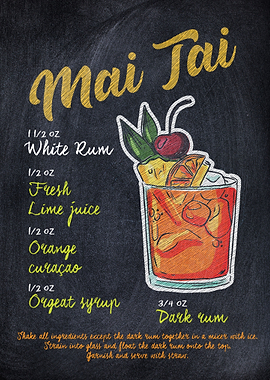 Mai Tai
1 1/2 OZ
White Rum
1/2 OZ
Fresh
Lime juice
1/2 OZ
Orange
curaçao
1/2 OZ
Orgeat syrup
3/4 OZ
Dark rum
Shake all ingredients except the dark rum together in a mixer with ice.
Strain into glass and float the dark rum onto the top.
Garnish and serve with straw.